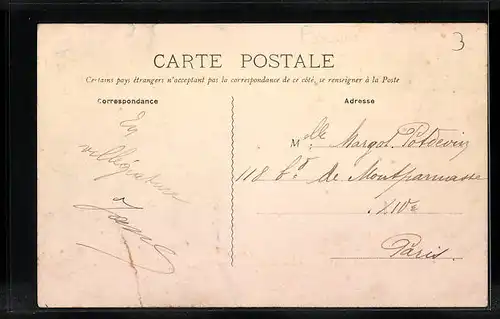 3
CARTE POSTALE
Certains pays étrangers n'acceptent pas la correspondance de ce côté, se renseigner à la Poste
Correspondance
Adresse
En
villégiature
à
Melle Margot Potdevin
118 bd de Montparnasse
XIVe
Paris.